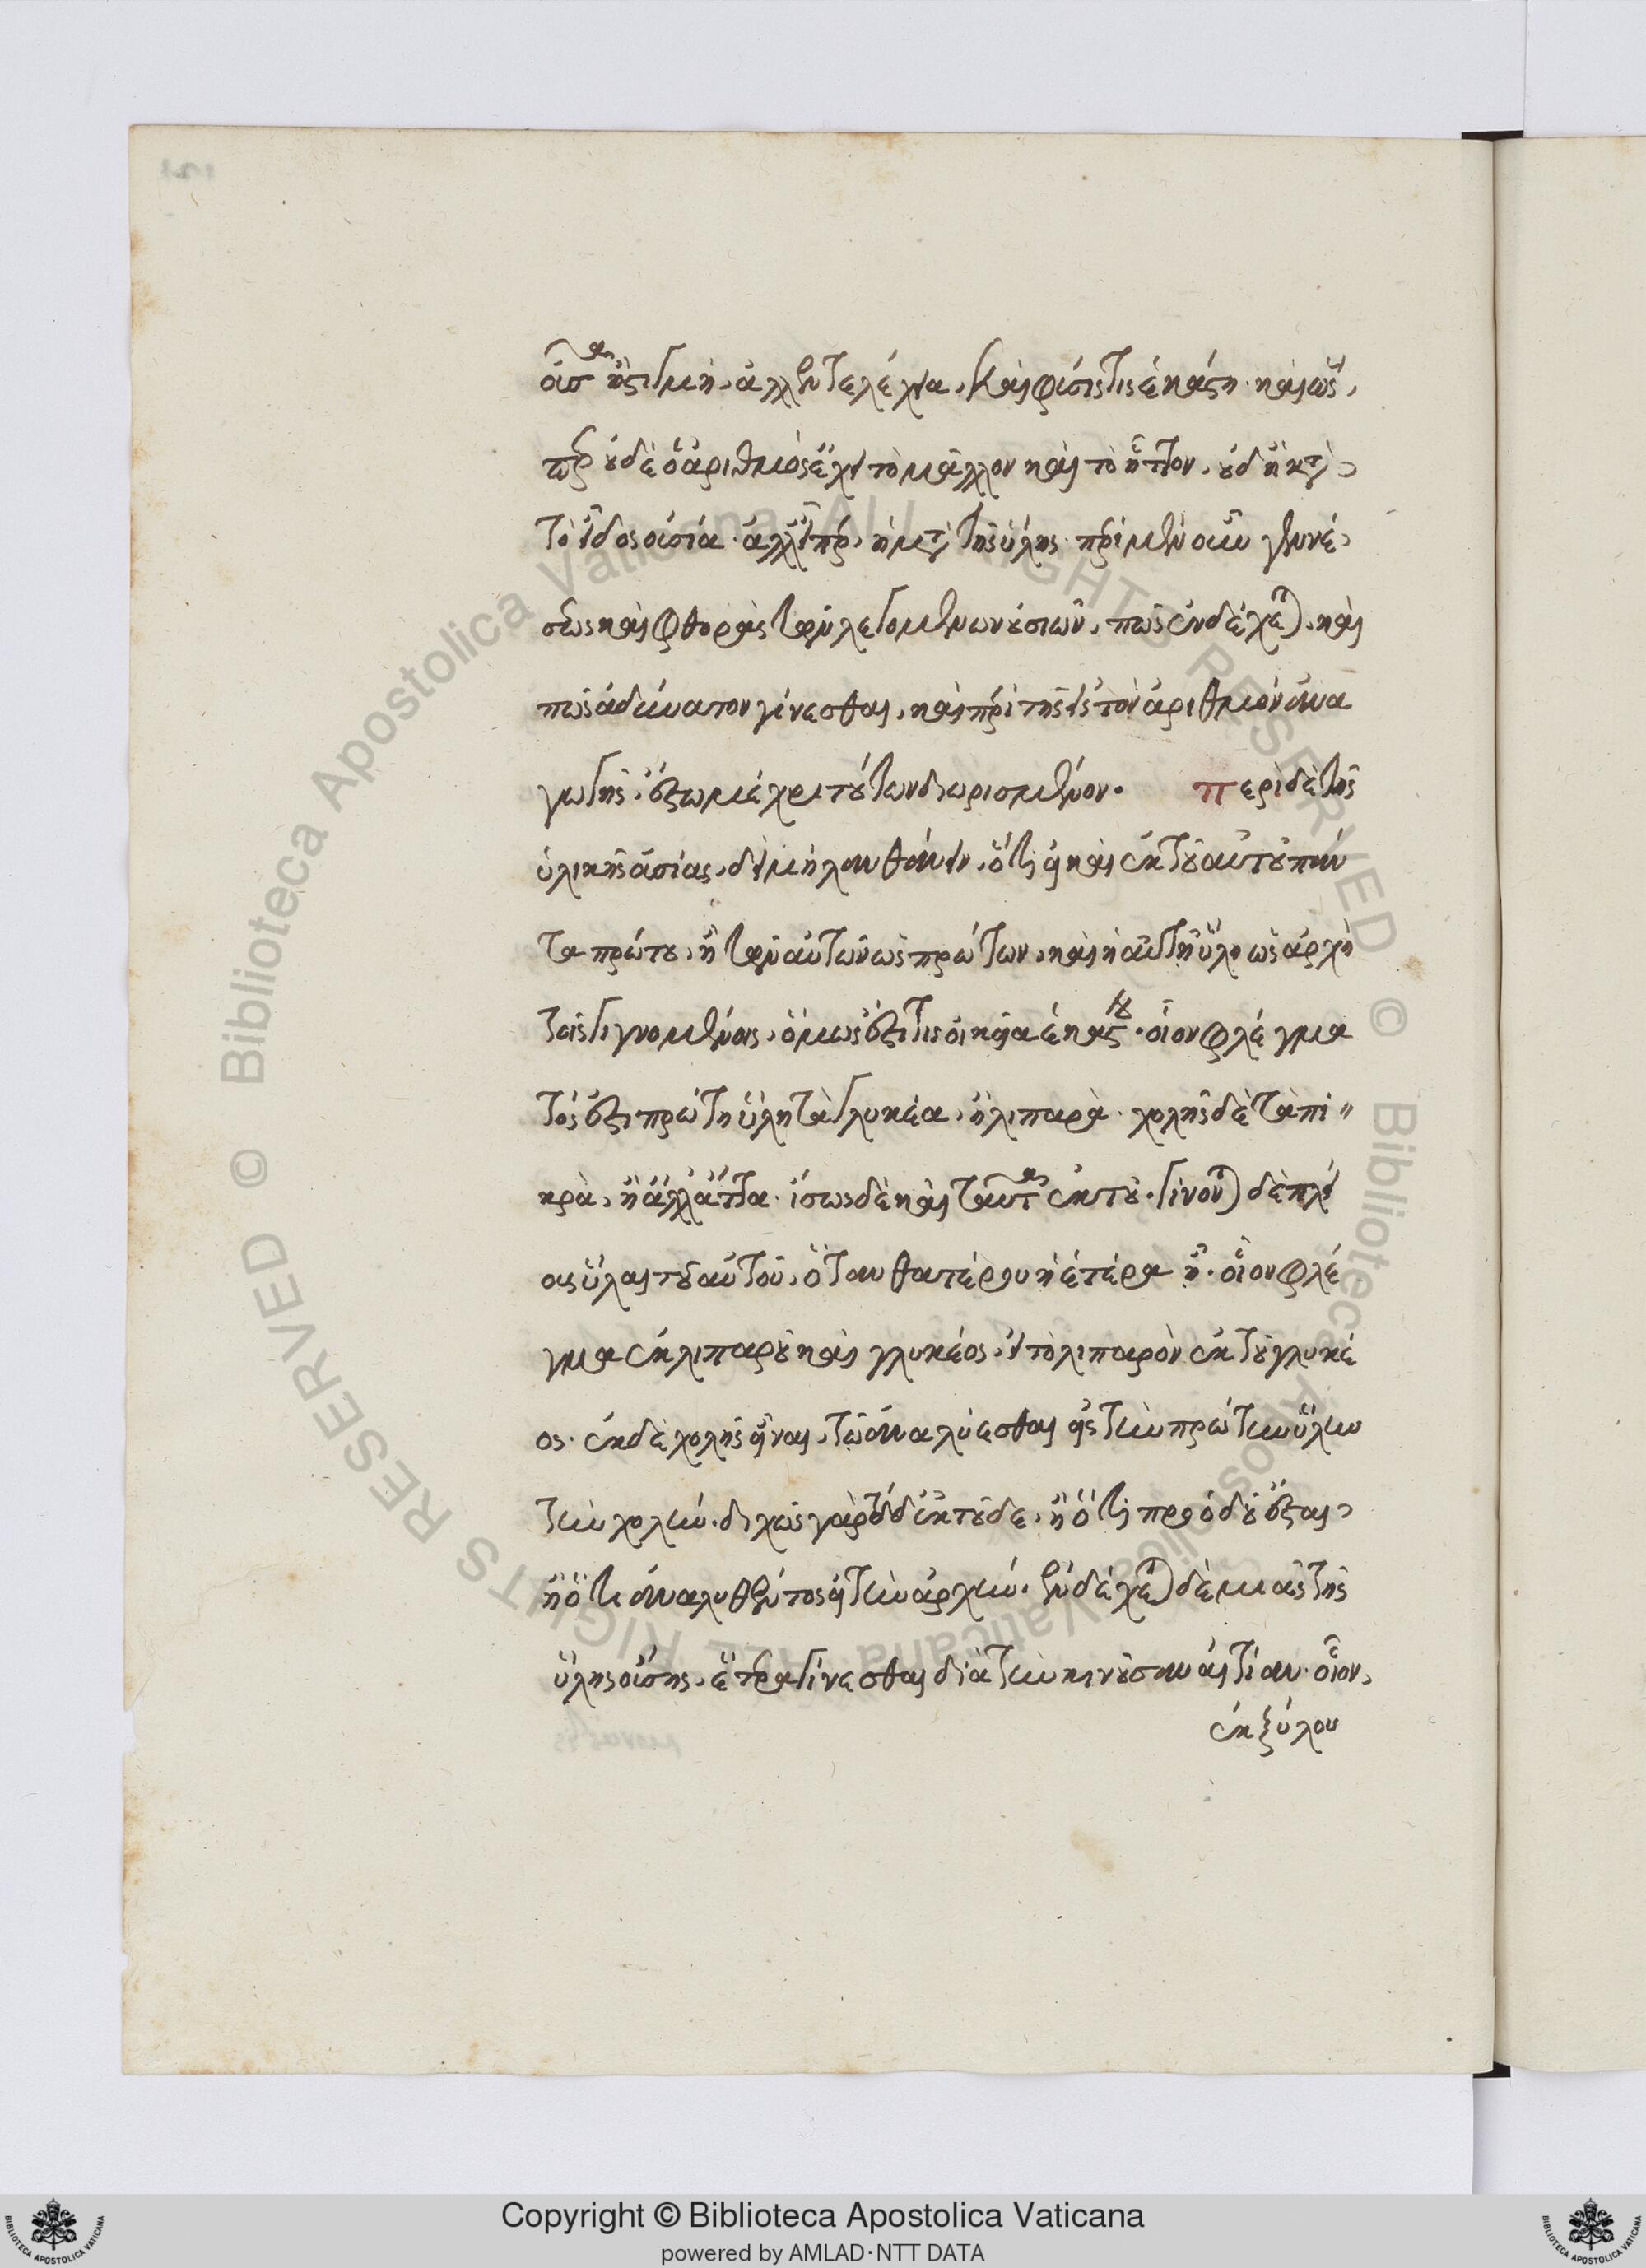 οὖσα ἢ στιγμή. ἀλλ' ἐντελέχεια. καὶ φύσις τις ἑκάστη. καὶ ὥς
περ οὐδὲ ὁ ἀριθμὸς ἔχει τὸ μᾶλλον καὶ τὸ ἧττον. οὐδ' ἡ κατὰ
τὸ εἶδος οὐσία. ἀλλ' εἴπερ, ἡ μετὰ τῆς ὕλης. περὶ μὲν οὖν γενέ
σεως καὶ φθορᾶς τῶν λεγομένων οὐσιῶν, πῶς ἐνδέχεται, καὶ
πῶς ἀδύνατον γίνεσθαι, καὶ περὶ τῆς εἰς τὸν ἀριθμὸν ἀνα
γωγῆς, ἔστω μέχρι τούτων διωρισμένον. περὶ δὲ τῆς
ὑλικῆς οὐσίας, δεῖ μὴ λανθάνειν, ὅτι εἰ καὶ ἐκ τοῦ αὐτοῦ πάν
τα πρώτου, ἢ τῶν αὐτῶν ὡς πρώτων, καὶ ἡ αὐτὴ ὕλη ὡς ἀρχὴ
τοῖς γιγνομένοις, ὅμως ἔστι τις οἰκεία ἑκάστου. οἷον φλέγμα
τός ἐστι πρώτη ὕλη τὰ γλυκέα, ἢ λιπαρά. χολῆς δὲ τὰ πι
κρὰ, ἢ ἄλλ' ἄττα. ἴσως δὲ καὶ ταῦτα ἐκ του. γίνονται δὲ πλεί
ους ὗλαι τοῦ αὐτοῦ, ὅταν θατέρου ἡ ἑτέρα ᾖ. οἷον φλέ
γμα ἐκ λιπαροῦ καὶ γλυκέος. εἰ τὸ λιπαρὸν ἐκ τοῦ γλυκέ
ος. ἐκ δὲ χολῆς εἶναι, τῷ ἀναλύεσθαι εἰς τὴν πρώτην ὕλην
τὴν χολήν. διχῶς γὰρ τόδ' ἐκ τοῦδε, ἢ ὅτι πρὸ ὁδοῦ ἔσται,
ἢ ὅτι ἀναλυθέντος εἰς τὴν ἀρχήν. ἐνδέχεται δὲ μιᾶς τῆς
ὕλης οὔσης, ἕτερα γίνεσθαι διὰ τὴν κινοῦσαν αἰτίαν. οἷον,
ἐκ ξύλου